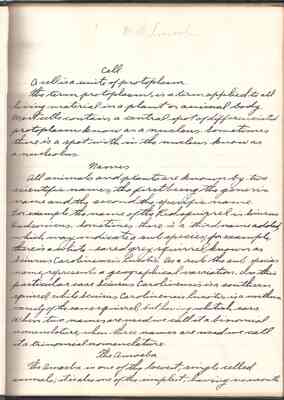 Cell
A cell is a unit of protoplasm
The term protoplasm, is a term applied to all
living material in a plant or animal body.
Most cells contain a central spot of differentiated
protoplasm known as a nucleus. Sometimes
there is a spot with in the nucleus known as
a nucleolus.
Names
All animals and plants are known by two
scientific names, the first being the generic
name and the second the specific name.
For example the name of the Red squirrel is Sciurus
hudsonicus. Sometimes there is a third name added
which may indicate a sub species, for example
there is a white eared grey squirrel known as
Sciurus Carolinensis leucotis. As a rule the sub species
name represents a geographical variation. In this
particular case Sciurus Carolinensis is a southern
squirrel while Sciurus Carolinensis leucotis is a northern
variety of the same squirrel, it having white ears
when two names are used we call it a binomial
nomenclature, when three names are used we call
it a trinomial nomenclature.
The Amoeba
The amoeba is one of the lowest, single celled
animals, it is also one of the simplest, having no mouth